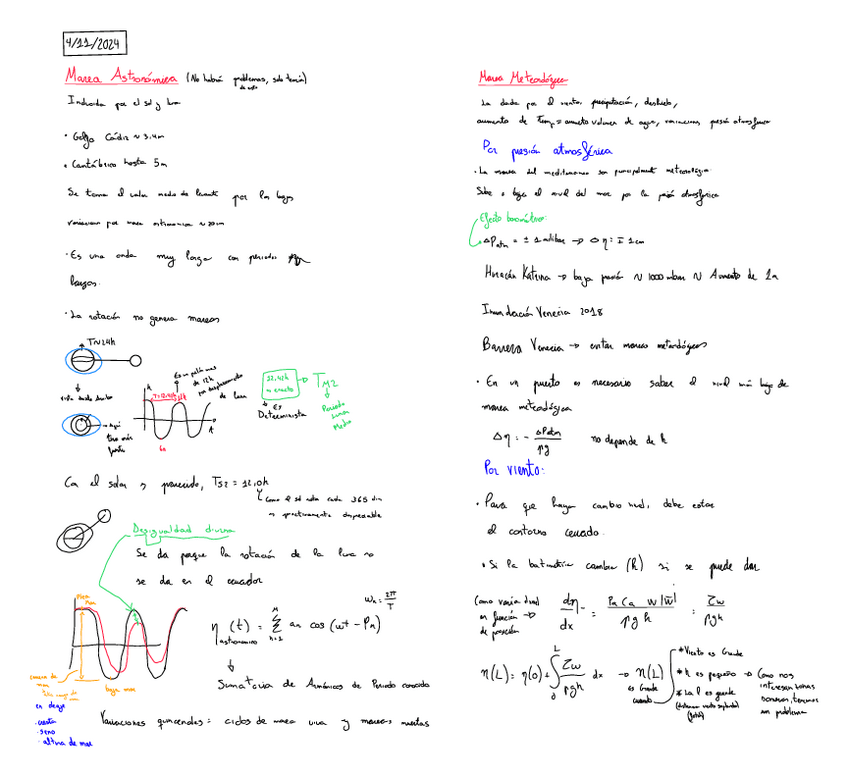 4/11/2024
Marea Astronómica (No habrá problemas, solo teoría)
Inducida por el sol y luna
· Golfo Cádiz ~ 3.4m
· Cantábrico hasta 5m
Se toma el valor medio de levante por lo bajo
variaciones por marea astronomica ~ 20cm
· Es una onda muy larga con periodos
largos.
· La rotación no genera mareas
T~24h
T=12.42h
h
t
de 12h
de luna
12,42h
→ T M2
Es
Determinista
Periodo
Lunar
Medio
Aquí
6h
Con el solar es parecido, TS2 = 12,0h
como el sol rota cada 365 dias
es practicamente despreciable
Desigualdad diurna
Se da porque la rotación de la luna no
se da en el ecuador
ωn = 2π/T
η (t) = Σ an cos (ωt - φn)
astronomico
n=1
Sumatoria de Armónicos de Periodo conocido
carrera de
mar
baja mar
en desge
· cresta
· seno
· altura de mar
Variaciones quincenales: ciclos de marea viva y mareas muertas
Marea Meteorológica
La dada por el viento, precipitación, deshielo,
aumento de Temp = aumento volumen de agua, variaciones presión atmosferica
Por presión atmosférica
· La marea del mediterraneo son principalmente meteorológica
Sube o baja el nivel del mar por la presión atmosferica
Efecto barométrico:
ΔPatm = ± 1 milibar → Δη: ∓ 1cm
Huracán Katrina → baja presión ~ 1000 mbar ~ Aumento de 1m
Inundación Venecia 2018
Barrera Venecia → evitar mareas meteorológicas
· En un puerto es necesario saber el nivel más bajo de
marea meteorológica
Δη = - ΔPatm/ρg no depende de h
Por viento:
· Para que haya cambio nivel, debe estar
el contorno cerrado.
· Si la batimetría cambia (h) si se puede dar
(como varia nivel
en función →
de posición
dη/dx = ρa Ca W |W|/ρgh = τω/ρgh
η(L) = η(0) + ∫0L τω/ρgh dx → η(L)
es Grande
cuando
* Viento es Grande
* h es pequeño → Como nos
interesan zonas
someras, tenemos
un problema
* La L es grande
(fetch)